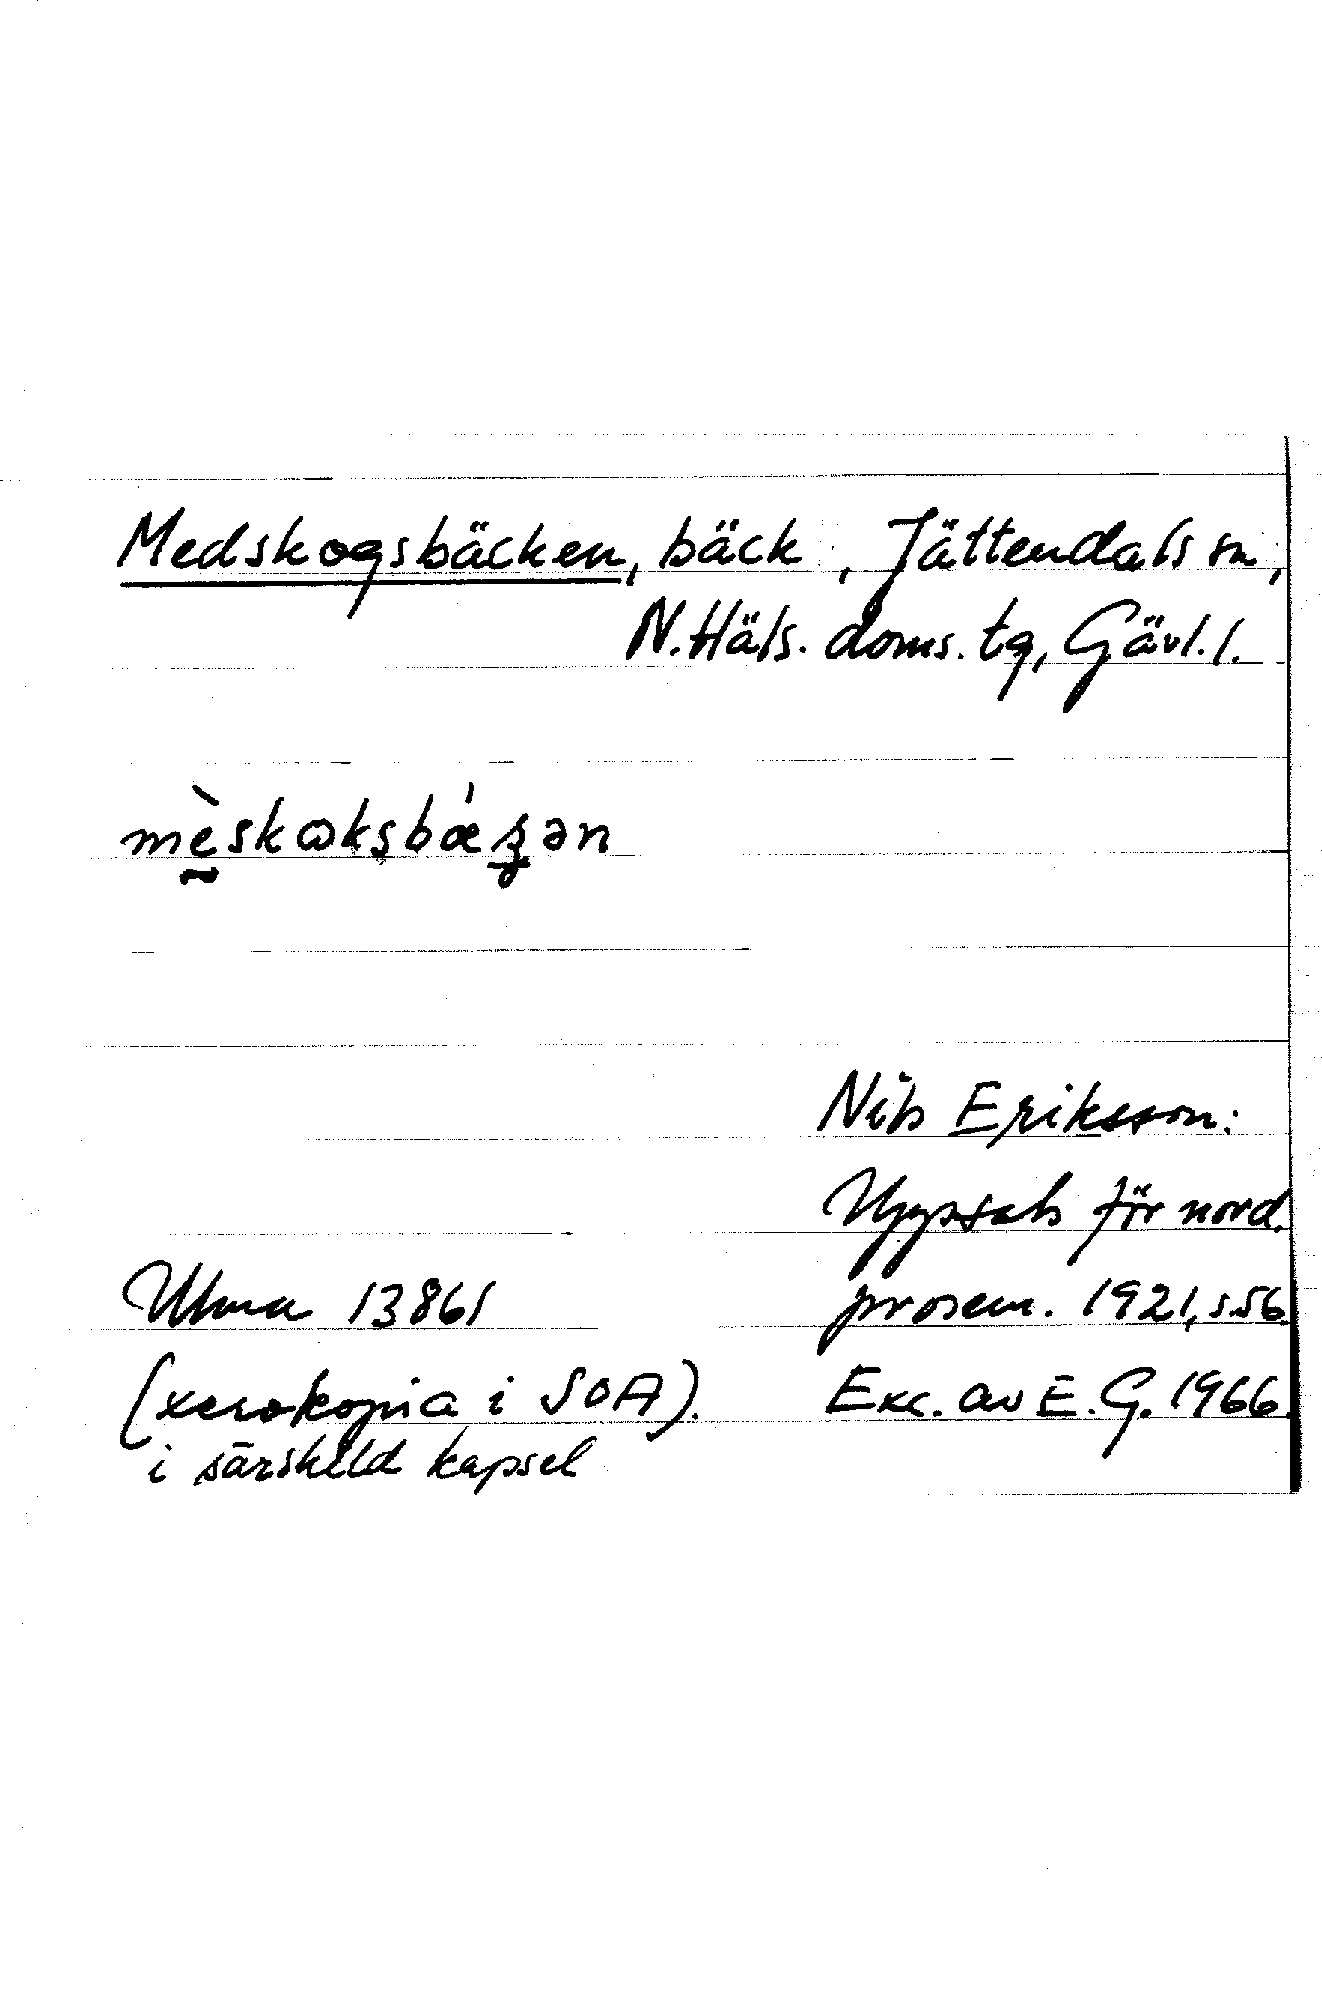 Medskogsbäcken, bäck, Jättendals sn,
N. Häls. doms. tg, Gävl. l.
mḛ̀skɷksbǽʓən
Nils Eriksson:
Uppsats för nord.
Ulma 13861 prosem. 1921, s. 56.
(xerokopia i SOA). Exc. av E. G. 1966.
i särskild kapsel